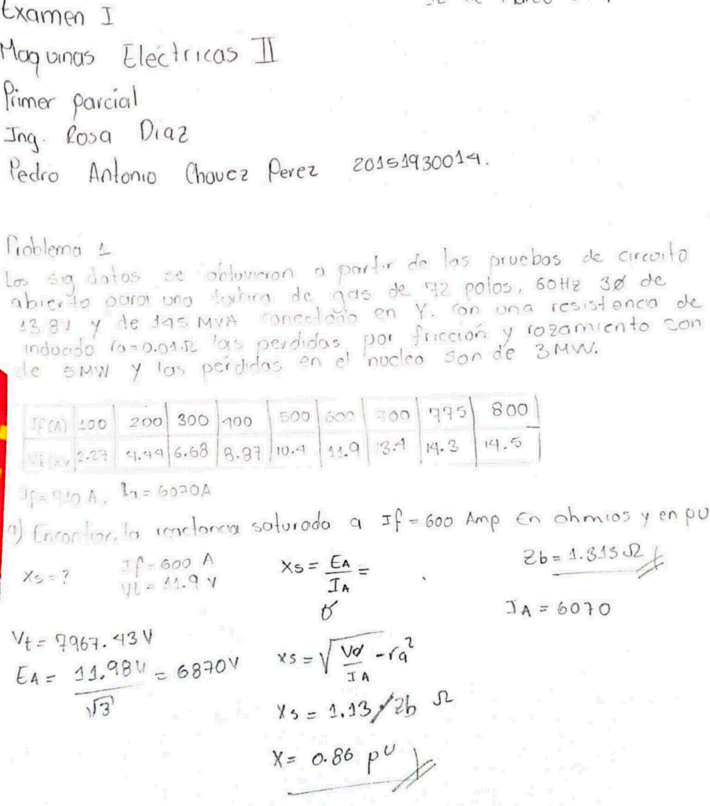 Examen I
Maquinas Electricas II
Primer parcial
Ing. Rosa Diaz
Pedro Antonio Chavez Perez 20151930014.
Problema 1
Los sig datos se obtuvieron a partir de las pruebas de circuito
abierto para una turbina de gas de 72 polos, 60Hz 3Ø de
13.8V y de 145 MVA conectado en Y. con una resistencia de
inducido ra=0.01Ω las perdidas por fricción y rozamiento son
de 5MW y las perdidas en el nucleo son de 3MW.
If(A) 100 200 300 400 500 600 700 775 800
2.27 4.44 6.68 8.87 10.4 11.9 13.4 14.3 14.5
A, = 6070A
a) Encontrar la reactancia saturada a If=600 Amp en ohmios y en pu
Xs=? If=600 A Xs = EA/IA = Zb = 1.315Ω
Vt = 11.9 V
IA = 6070
Vt = 7967.43V
EA = 11.98V/√3 = 6870V Xs = √ VØ/IA - ra²
Xs = 1.13/Zb Ω
X = 0.86 pU